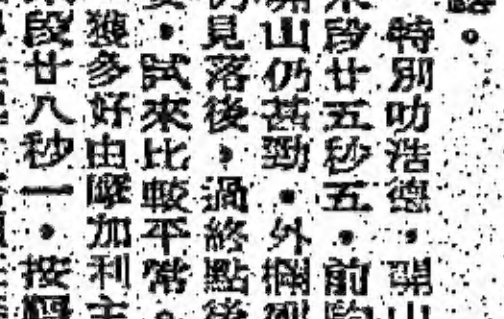 。
特別叻浩德，開山
段廿五秒五，前
山仍甚勁，外欄
見落後，過終點後
，試來比較平常。
獲多好由 加利主
段廿八秒一，按